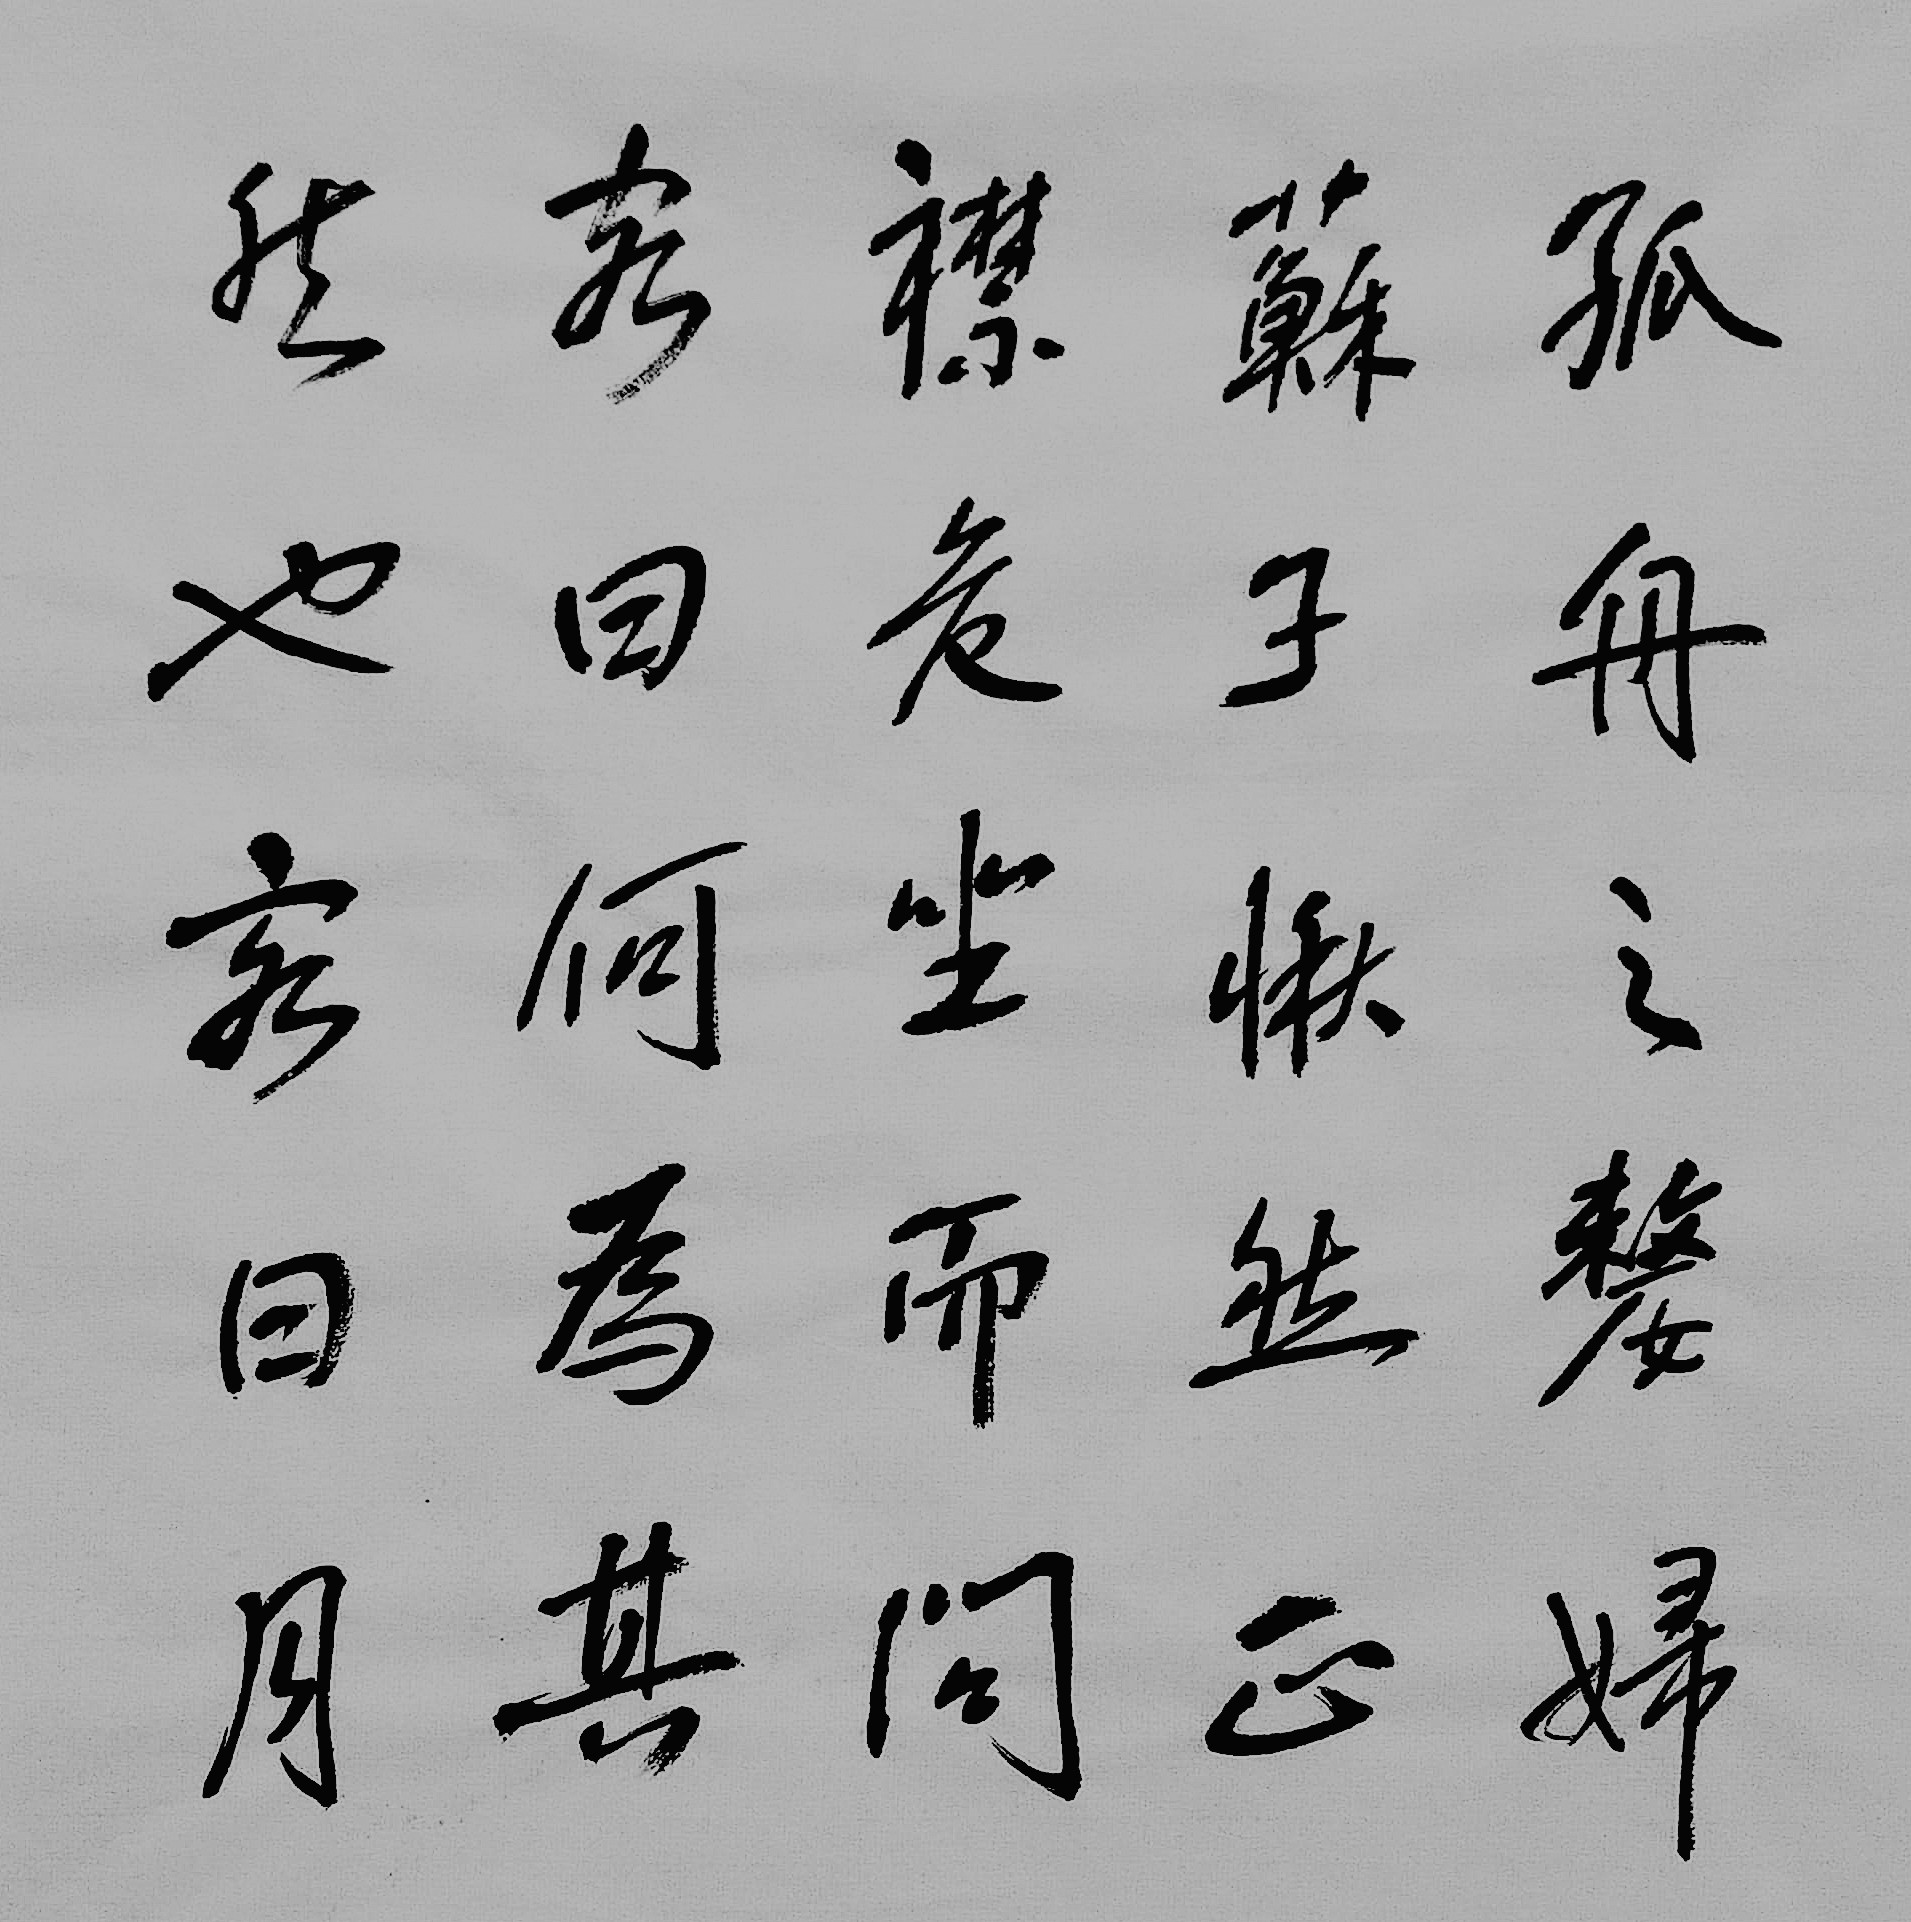 孤舟之嫠婦
蘇子愀然正
襟危坐而問
客曰何為其
然也客曰月